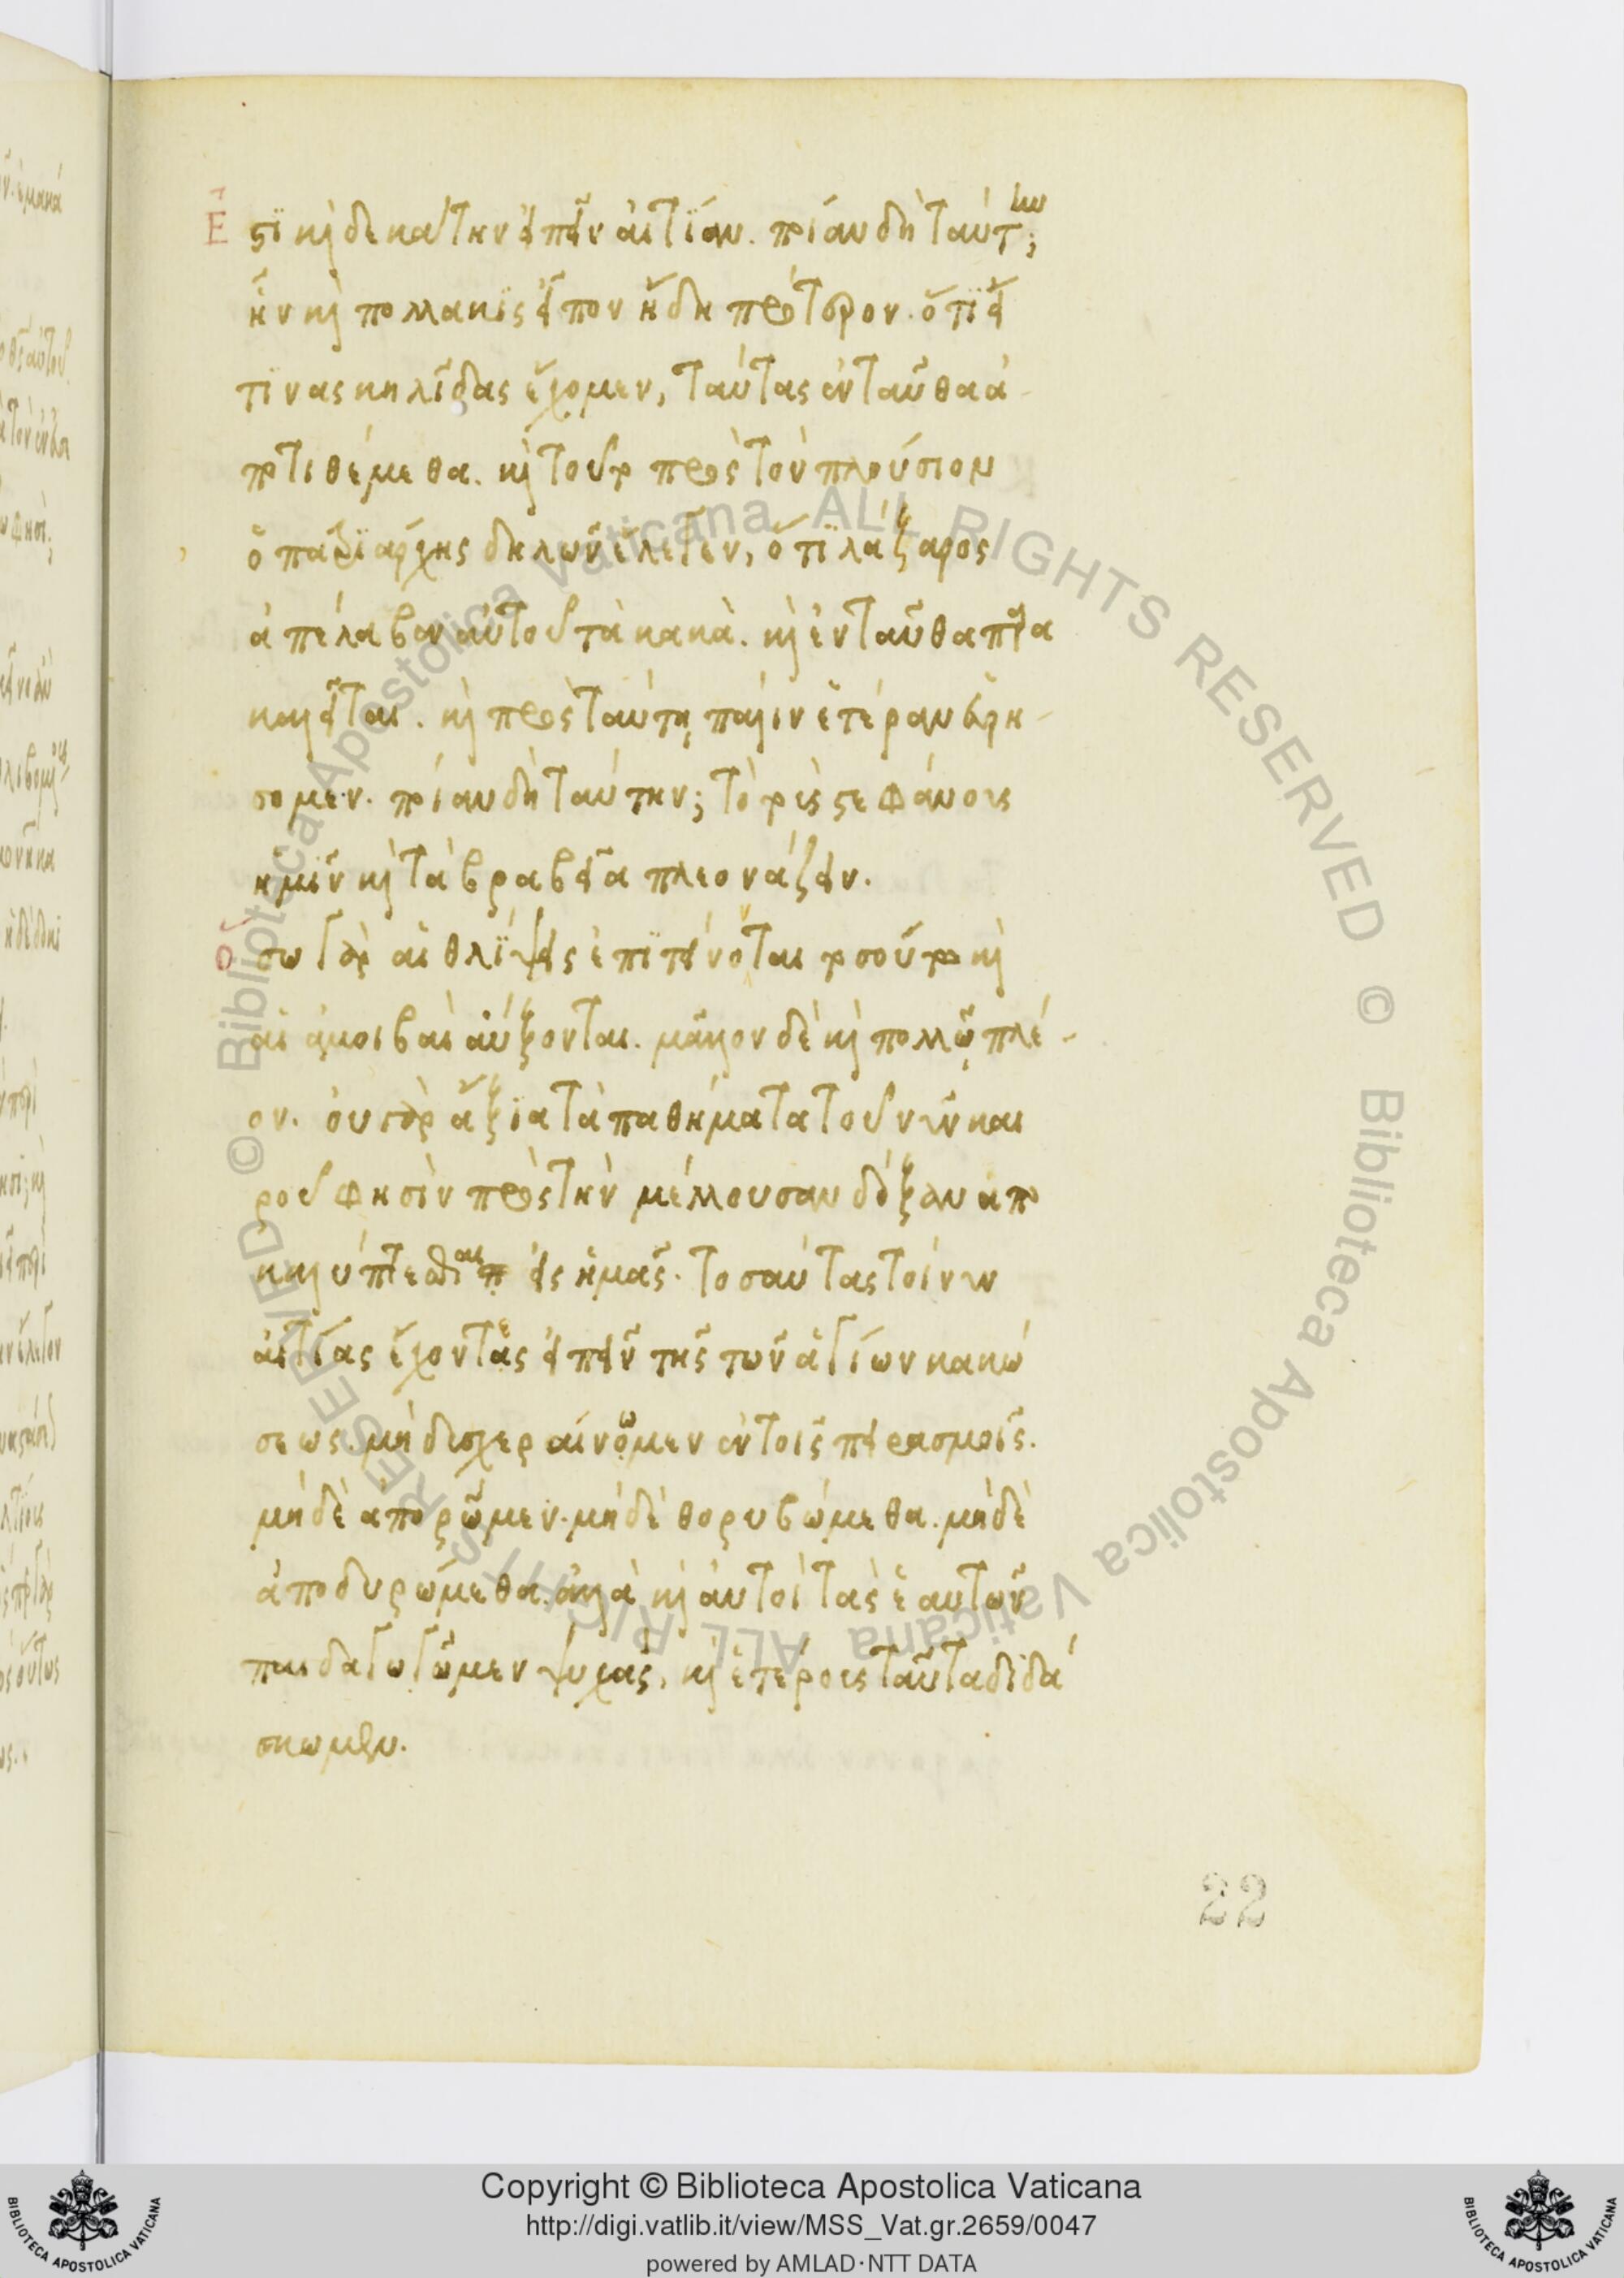 Ἔ στι καὶ δεκάτην εἰπεῖν αἰτίαν. ποίαν δὴ ταύτην;
ἣν καὶ πολλάκις εἶπον ἤδη πρότερον. ὅτι εἴ
τινας κηλίδας ἔχομεν, ταύτας ἐνταῦθα ἀ-
ποτιθέμεθα. καὶ τοῦτο πρὸς τὸν πλούσιον
ὁ πατριάρχης δηλῶν ἔλεγεν, ὅτι λάζαρος
ἀπέλαβεν αὐτοῦ τὰ κακὰ. καὶ ἐνταῦθα παρα
καλεῖται. καὶ πρὸς ταύτῃ πάλιν ἑτέραν εὑρή-
σομεν. ποίαν δὴ ταύτην; τὸ τοὺς στεφάνους
ἡμῖν καὶ τὰ βραβεῖα πλεονάζειν.
Ὅσω γὰρ αἱ θλίψεις ἐπιτείνονται τοσοῦτο καὶ
αἱ ἀμοιβαὶ αὔξονται. μᾶλλον δὲ καὶ πολλῷ πλέ-
ον. οὐ γὰρ ἄξια τὰ παθήματα τοῦ νῦν και
ροῦ φησὶν πρὸς τὴν μέλλουσαν δόξαν ἀπο
καλύπτεσθαι εἰς ἡμᾶς. τοσαύτας τοίνυν
αἰτίας ἔχοντες εἰπεῖν τῆς τῶν ἁγίων κακώ
σεως. μὴ δυσχεραίνωμεν ἐν τοῖς πειρασμοῖς.
μηδὲ ἀπορῶμεν. μηδὲ θορυβώμεθα. μηδὲ
ἀποδυρώμεθα. ἀλλὰ καὶ αὐτοὶ τὰς ἑαυτῶν
παιδαγωγῶμεν ψυχάς, καὶ ἑτέρους ταῦτα διδά
σκωμεν.
22
Copyright © Biblioteca Apostolica Vaticana
http://digi.vatlib.it/view/MSS_Vat.gr.2659/0047
powered by AMLAD·NTT DATA
BIBLIOTECA APOSTOLICA VATICANA
BIBLIOTECA APOSTOLICA VATICANA
© Biblioteca Apostolica Vaticana ALL RIGHTS RESERVED © Biblioteca Apostolica Vaticana ALL RIGHTS RESERVED